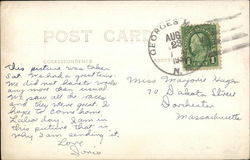 POST CARD
CORRESPONDENCE
GEORGES
AUG
N.
1
This picture was taken
Sat. We had a great time.
We did not have to work
any more than usual.
We saw all the races
and they were great. I
hope to come home
Labor day. I am in
this picture that is
why I am sending it.
Love
Miss Marjorie
70 Dakota Street
Dorchester
Massachusetts